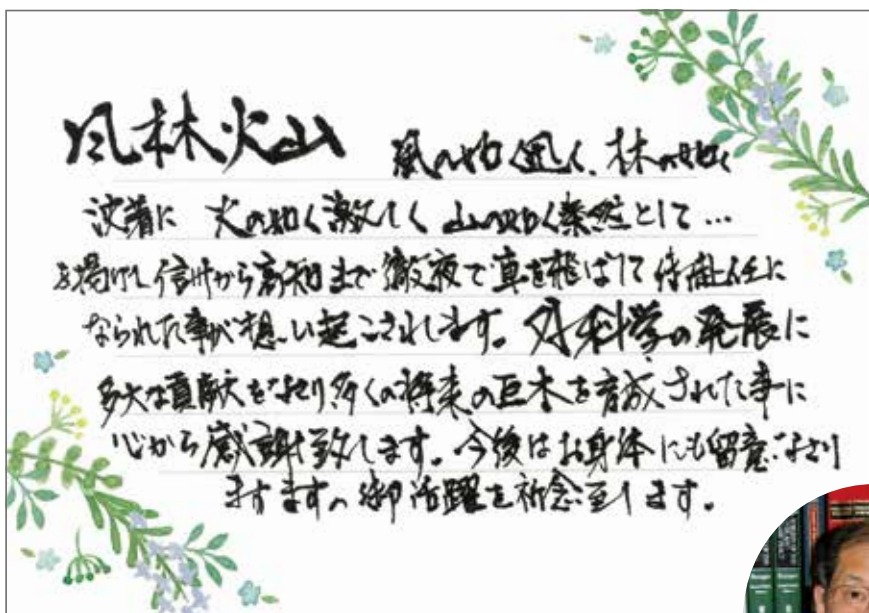 風林火山 風の如く迅く、林の如く
沈着に 火の如く激しく 山の如く泰然として…
を掲げし信州から高知まで徹夜で車を飛ばして御赴任に
なられた事が想い起こされます。外科学の発展に
多大な貢献をなさり多くの将来の巨木を育成された事に
心から感謝致します。今後はお身体にも留意なさり
ますますの御活躍を祈念致します。